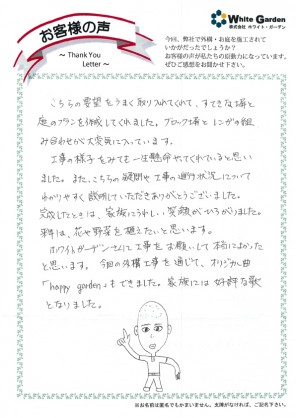 お客様の声
～ Thank You
Letter ～
White Garden
株式会社 ホワイト・ガーデン
今回、弊社で外構・お庭を施工されて
いかがだったでしょうか？
お客様の声が私たちの原動力になっています。
ぜひご感想をお聞かせ下さい。
こちらの要望をうまく取り入れてくれて、すてきな塀と
庭のプランを作成してくれました。ブロック塀とレンガの組
み合わせが大変気に入っています。
工事の様子をみても一生懸命やってくれていると思い
ました。また、こちらの疑問や工事の進行状況について
わかりやすく説明していただきありがとうございました。
完成したときは、家族にうれしい笑顔がひろがりました。
来年は、花や野菜を植えたいと思います。
ホワイトガーデンさんに工事をお願いして本当によかった
と思います。今回の外構工事を通じて、オリジナル曲
「happy garden」もできました。家族には好評な歌
となりました。
※お名前は匿名でもかまいません。支障がなければ、ご記名下さい。